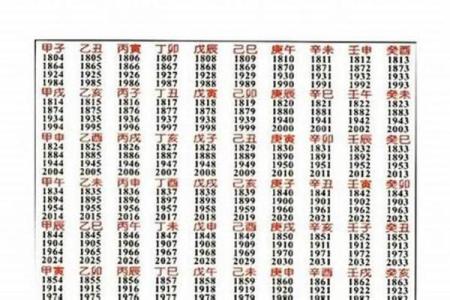 甲子 乙丑 丙寅 丁卯 戊辰 己巳 庚午 辛未 壬申 癸酉
1804 1805 1806 1807 1808 1809 1810 1811 1812 1813
1864 1865 1866 1867 1868 1869 1870 1871 1872 1873
1924 1925 1926 1927 1928 1929 1930 1931 1932 1933
1984 1985 1986 1987 1988 1989 1990 1991 1992 1993
甲戌 乙亥 丙子 丁丑 戊寅 己卯 庚辰 辛巳 壬午 癸未
1814 1815 1816 1817 1818 1819 1820 1821 1822 1823
1874 1875 1876 1877 1878 1879 1880 1881 1882 1883
1934 1935 1936 1937 1938 1939 1940 1941 1942 1943
1994 1995 1996 1997 1998 1999 2000 2001 2002 2003
甲申 乙酉 丙戌 丁亥 戊子 己丑 庚寅 辛卯 壬辰 癸巳
1824 1825 1826 1827 1828 1829 1830 1831 1832 1833
1884 1885 1886 1887 1888 1889 1890 1891 1892 1893
1944 1945 1946 1947 1948 1949 1950 1951 1952 1953
2004 2005 2006 2007 2008 2009 2010 2011 2012 2013
甲午 乙未 丙申 丁酉 戊戌 己亥 庚子 辛丑 壬寅 癸卯
1834 1835 1836 1837 1838 1839 1840 1841 1842 1843
1894 1895 1896 1897 1898 1899 1900 1901 1902 1903
1954 1955 1956 1957 1958 1959 1960 1961 1962 1963
2014 2015 2016 2017 2018 2019 2020 2021 2022 2023
甲辰 乙巳 丙午 丁未 戊申 己酉 庚戌 辛亥 壬子 癸丑
1844 1845 1846 1847 1848 1849 1850 1851 1852 1853
1904 1905 1906 1907 1908 1909 1910 1911 1912 1913
1964 1965 1966 1967 1968 1969 1970 1971 1972 1973
2024 2025 2026 2027 2028 2029 2030 2031 2032 2033
甲寅 乙卯 丙辰 丁巳 戊午 己未 庚申 辛酉 壬戌 癸亥
1854 1855 1856 1857 1858 1859 1860 1861 1862 1863
1914 1915 1916 1917 1918 1919 1920 1921 1922 1923
1974 1975 1976 1977 1978 1979 1980 1981 1982 1983